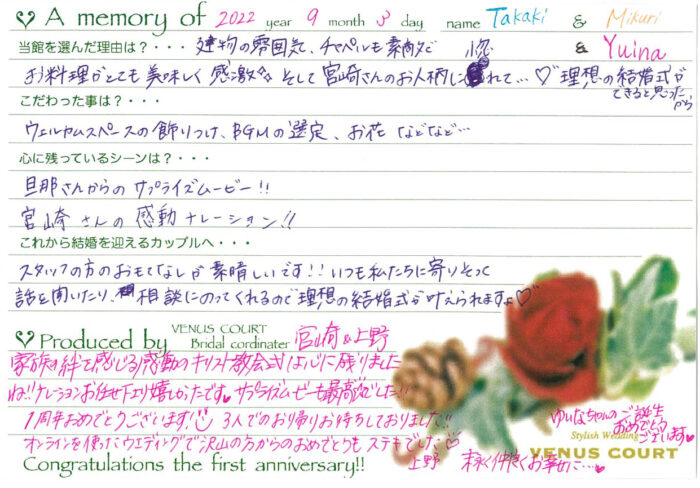 A memory of 2022 year 9 month 3 day name Takaki & Mikuri
& Yuina
当館を選んだ理由は？・・・ 建物の雰囲気、チャペルも素敵で
お料理がとても美味しく感激☆ そして宮崎さんのお人柄に惚れて…♡ 理想の結婚式が
できると思ったから
こだわった事は？・・・
ウェルカムスペースの飾りつけ、BGMの選定、お花 などなど…
心に残っているシーンは？・・・
旦那さんからの サプライズムービー!!
宮崎さんの 感動ナレーション!!
これから結婚を迎えるカップルへ・・・
スタッフの方のおもてなしが素晴しいです!! いつも私たちに寄りそって
話を聞いたり、相談にのってくれるので理想の結婚式が叶えられますよ♡
Produced by VENUS COURT Bridal cordinater 宮崎&上野
家族の絆を感じる感動のキリスト教会式は心に残りました
ね!! ナレーションお任せ下さり嬉しかったです♥ サプライズムービーも最高でした!!
1周年おめでとうございます!! 3人でのお帰りお待ちしておりました!!
オンラインを使ったウエディングで沢山の方からのおめでとうも ステキでした♡
上野
ゆいなちゃんのご誕生
おめでとう
ございます♥
Stylish Wedding
VENUS COURT
Congratulations the first anniversary!!
末永く仲良くお幸せに…♥